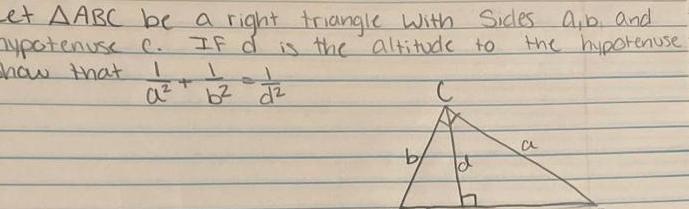 et ΔABC be a right triangle with Sides a,b, and
hypotenuse c. IF d is the altitude to the hypotenuse
how that 1/a² + 1/b² = 1/d²
C
b d a